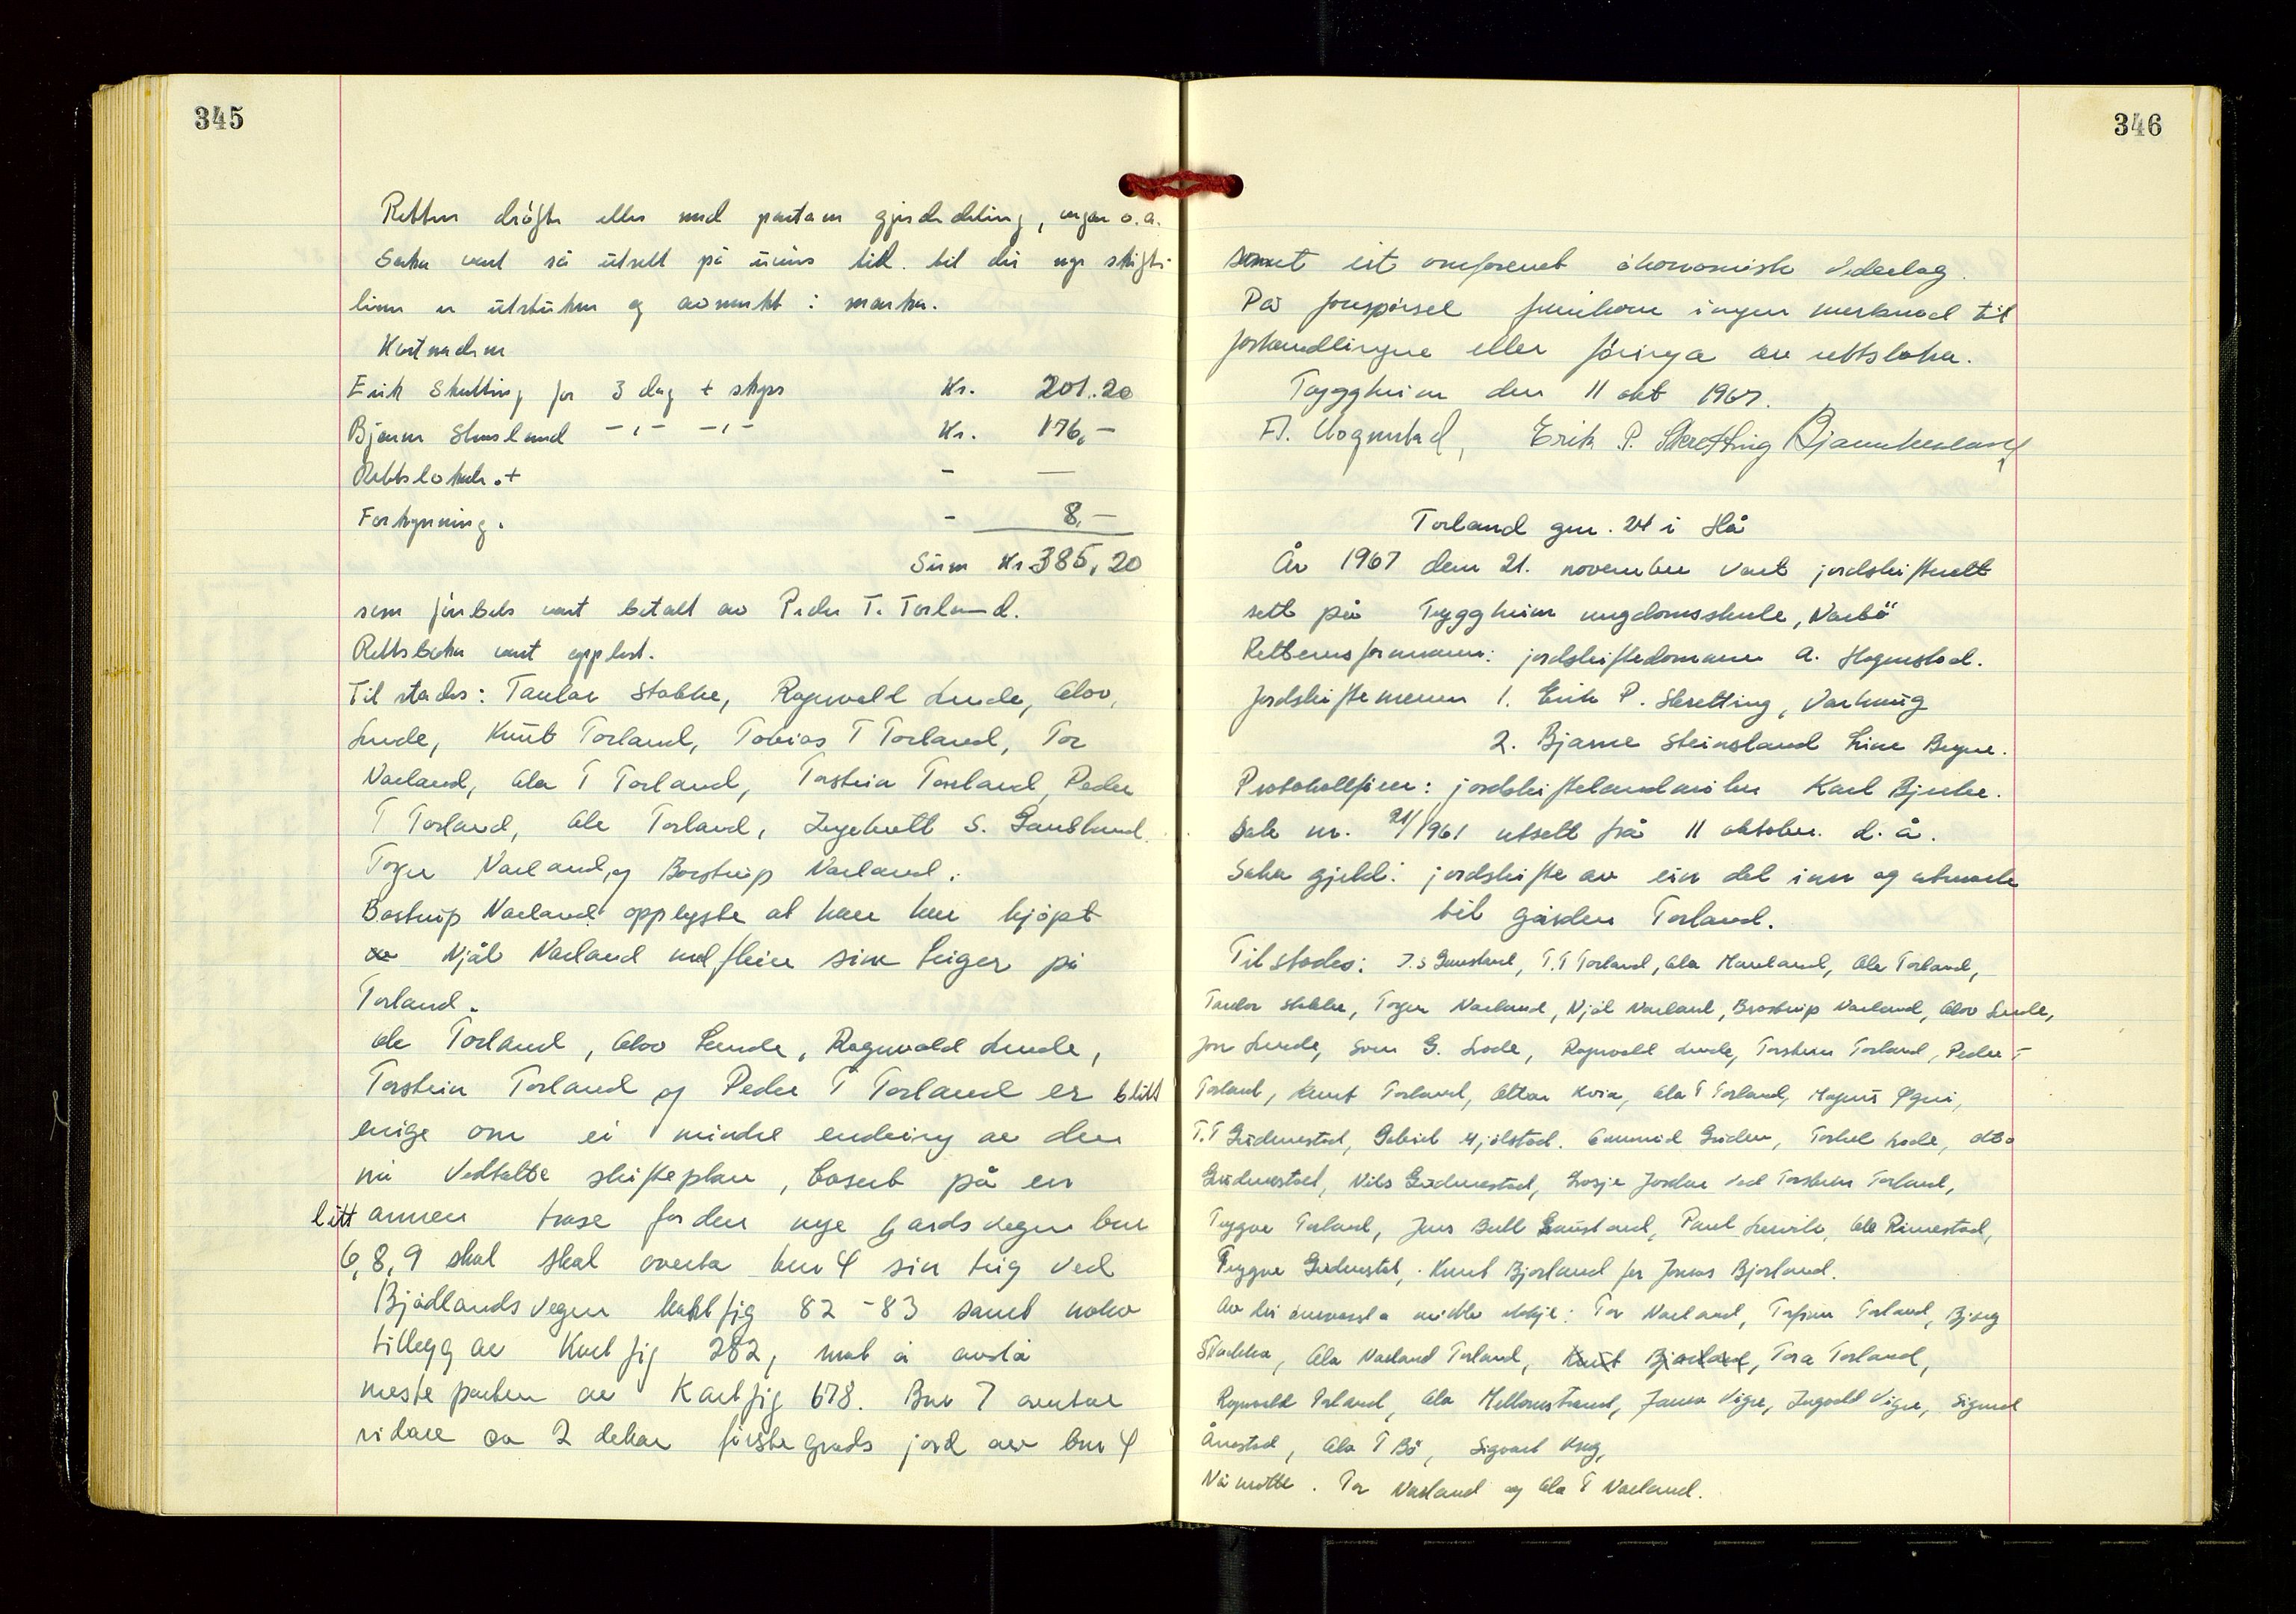 345
Retten drøfte elles med partane gjerdedeling, vegar o.a.
Saka vart så utsett på uviss tid. til dei nye skifte-
liner er utstukne og avmerkt i marka.
Kostnaden
Erik Skretting for 3 dag + skyss Kr. 201.20
Bjarne Steinsland -,- -,- Kr. 176,-
Rettslokale.+ - —
Forkynning. - 8,-
Sum Kr. 385,20
som førebels vart betalt av Peder T. Torland.
Rettsboka vart opplest.
Til stades: Tarlar Stokke, Ragnvald Lende, Olov,
Lende, Knut Torland, Tobias T Torland, Tor
Narland, Ola T Torland, Torstein Torland, Peder
T Torland, Ole Torland, Ingebrett S. Gausland.
Torger Narland, og Borstrup Narland.
Bostrup Narland opplyste at han har kjøpt
av Njål Narland sine teiger på
Torland.
Ole Torland, Olov Lende, Ragnvald Lende,
Torstein Torland og Peder T Torland er blitt
enige om ei mindre endring av den
nå vedtatte skifteplan, basert på en
litt annen trase for den nye gardsvegen bnr
6,8,9 skal skal overta bnr 4 sin teig ved
Bjødlandsvegen kartfig 82-83 samt noko
tillegg av Kartfig 282, mot å avstå
meste parten av Kartfig 678. Bnr 7 avstår
vidare ca 2 dekar første grads jord av bnr 4
346
samt eit omforenet økonomisk vederlag.
På forespørsel framkom ingen merknad til
forhandlingene eller føringa av rettsboka.
Tryggheim den 11 okt 1967.
A. Hognestad, Erik P. Skretting Bjarne Steinsland
Torland gnr. 24 i Hå
År 1967 den 21. november vart jordskifterett
sett på Tryggheim ungdomsskule, Nærbø
Rettens formann: jordskiftedommar A. Hognestad.
Jordskiftemenn 1. Erik P. Skretting, Varhaug
2. Bjarne Steinsland Line Bryne.
Protokollfører: jordskiftekandidaten Karl Bjerke.
Sak nr. 21/1961 utsett frå 11 oktober. d.å.
Saka gjeld: jordskifte av ein del inn og utmark
til garden Torland.
Til stades: I.S Gausland, T.T Torland, Ola Haveland, Ole Torland,
Tarlar Stokke, Torger Narland, Njål Narland, Brostrup Narland, Olov Lende,
Jon Lende, Sven G. Lode, Ragnvald Lende, Torstein Torland, Peder T
Torland, Knut Torland, Ottar Kvia, Ola T Torland, Magnus
T.T Gudmestad, Gabriel Mjølstad. Gudmund Torkel Lode, Otto
Gudmestad, Nils Gudmestad, Jordan ved Torstein Torland,
Trygve Torland, Jens Bull Gausland, Paul Ole Rimestad,
Trygve Gudmestad, Knut Bjorland for Jonas Bjorland.
Av dei innvarsla møtte ikkje: Tor Narland, Torfinn Torland, Bjørg
Stokka, Ola Narland Torland, Knut Bjorland, Tora Torland,
Ragnvald Torland, Ola Mellomstrand, Jonas Vigre, Ingvald Vigre, Sigurd
Ånestad, Ola T Bø, Sigvart
Nå møtte. Tor Narland og Ola T Narland.